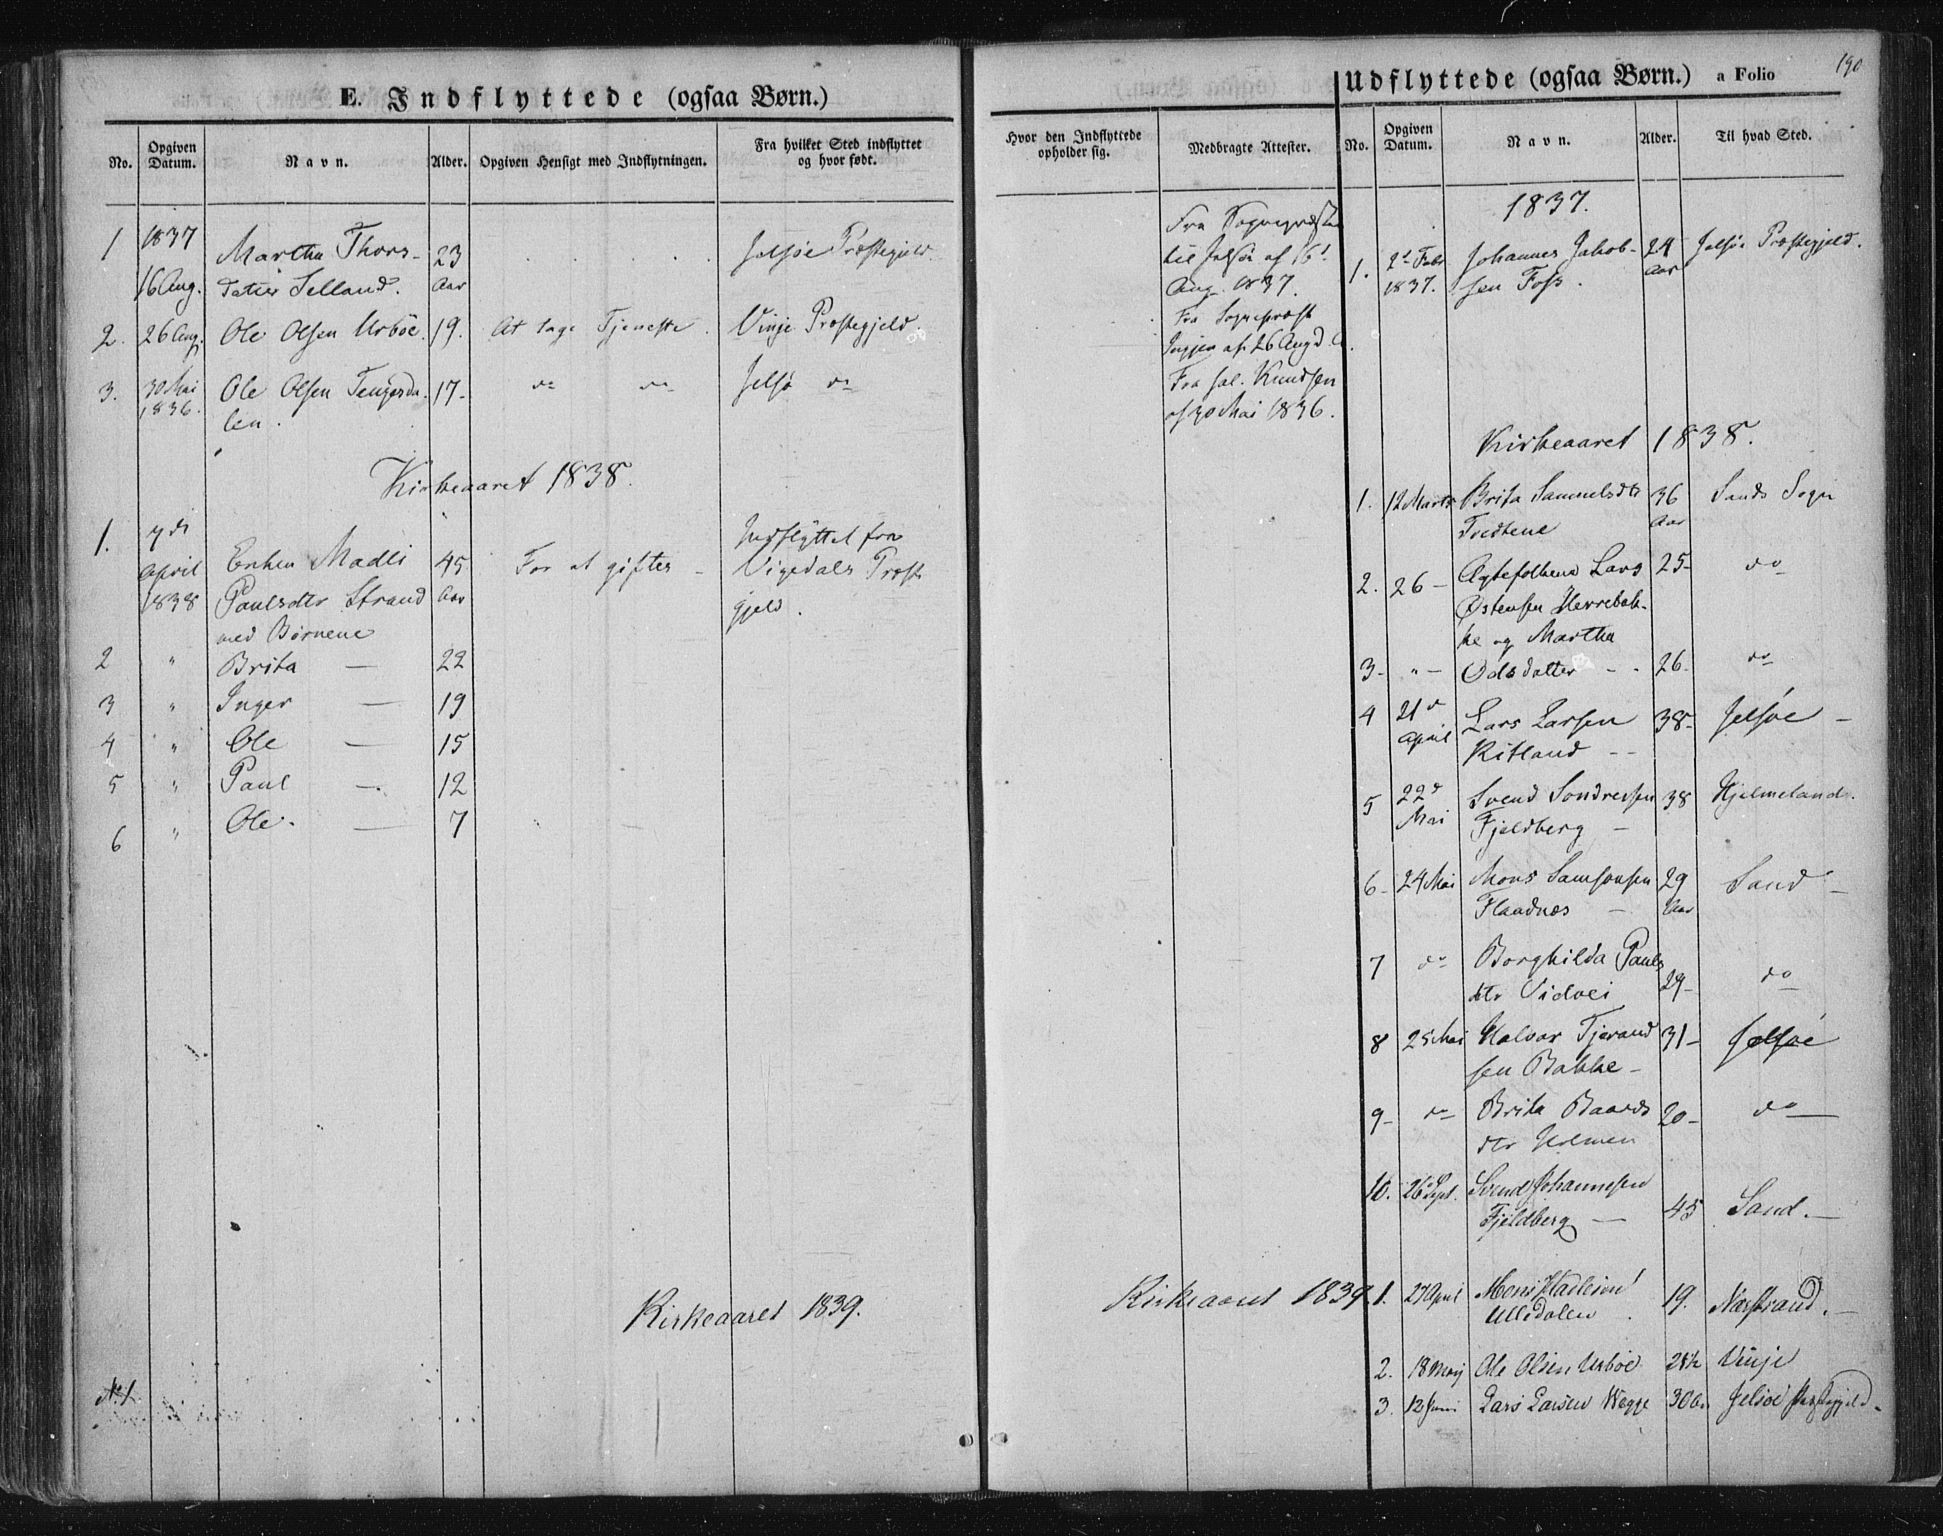 E. Indflyttede (ogsaa Børn.)
No. Opgiven Datum. Navn. Alder. Opgiven Hensigt med Indflytningen. Fra hvilket Sted indflyttet og hvor født.
1 1837 16 Aug. Martha Thors-
datter Selland. 23 Aar Jelsøe Præstegjeld
2. 26 Aug. Ole Olsen Urbøe. 19. At tage Tjeneste. Vinje Præstegjeld.
3. 30 Mai 1836. Ole Olsen Tengesda-
len. 17- do do Jelsø do
Kirkeaaret 1838.
1. 7de April 1838 Enken Madli
Paulsdtr Strand
med Børnene 45 Aar For at giftes - Indflyttet fra
Vigedals Præste
gjeld.
2 " Brita — 22
3 " Inger — 19
4 " Ole — 15
5 " Paul — 12
6 " Ole. — 7
Kirkeaaret 1839.
No 1.
190
Hvor den Indflyttede opholder sig. Medbragte Attester.
Fra Sognepræsten
til Jelsøe af 16
Aug. 1837.
Fra Sognepræst
af 26 Aug d. A.
Fra Knudsen
af 30 Mai 1836.
Kirkeaaret 1839.
Udflyttede (ogsaa Børn.) a Folio
No. Opgiven Datum. Navn. Alder. Til hvad Sted.
1837.
1. 2 Febr 1837. Johannes Jakob-
sen Foss. 24 Aar Jelsøe Præstegjeld.
Kirkeaaret 1838.
1. 12 Marts Brita Samuelsdtr
Tvedtene 36 Aar Sands Sogn
2. 26 - Ægtefolkene Lars
Østensen Herrebak-
ke og Martha 25- do
3- " - Odsdatter - - 26- do
4 21 April Lars Larsen
Ritland - - 38- Jelsøe -
5 22 Mai Svend Sondresen
Fjeldberg - 38 Hjelmeland.
6- 24 Mai Mons Samsonsen
Flaadnæs - 29 Aar Sand -
7 do Borghilda Pauls
dtr Vidvei 29- do
8 25 Mai Halvor Tjerand
sen Bakke - 31- Jelsøe
9- do Brita Baards
dtr Holmen 20- do
10. 26 Sept. Svend Johannesen
Fjeldberg — 45 Sand. -
1. 27 April Mons
Ullsdalen. 19. Nærstrand. -
2. 18 Maj Ole Olsen Urbøe 21½ Vinje
3. 12 Juni Lars Larsen Wegge 30 Aar Jelsøe Præstegjeld.